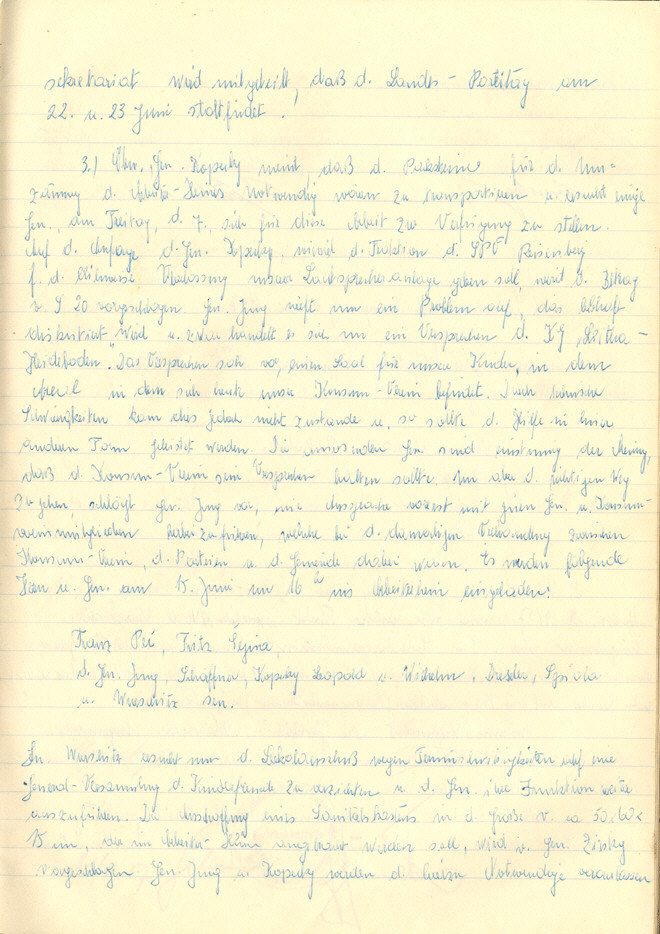 sekretariat wird mitgeteilt, daß d. Landes-Parteitag am
22. u. 23 Juni stattfindet.
3.) Obm. Gen. Kopecky meint, daß d. für d. Um=
zäunung d. Arbeiter-Heimes notwendig wären zu transportieren u. ersucht einige
Gen., am Freitag, d. 7., sich für diese Arbeit zur Verfügung zu stellen.
Auf d. Anfrage d. Gen. Kopecky, wieviel d. Fraktion d. SPÖ
f. d. Verlassung unserer Lautsprecheranlage geben soll, wird d. Betrag
v. S 20 vorgeschlagen. Gen. Jung wirft nun ein Problem auf, das lebhaft
diskutiert wird u. zwar handelt es sich um ein Versprechen d. KG
Heideboden". Das Versprechen sah vor, einen Saal für unsere Kinder, in dem
Areal in dem sich heute unser Konsum-Verein befindet. Durch technische
Schwierigkeiten kam dies jedoch nicht zustande u. so sollte d. Hilfe in einer
anderen Form geleistet werden. Die anwesenden Gen. sind einstimmig der Meinung,
daß d. Konsum-Verein sein Versprechen halten sollte. Um aber d. richtigen Weg
zu gehen, schlägt Gen. Jung vor, eine Aussprache vorerst mit jenen Gen. u. Konsum-
vereinmitgliedern herbeizuführen, welche bei d. damaligen Verhandlung zwischen
Konsum-Verein, d. Parteien u. d. Gemeinde dabei waren. Es werden folgende
Herrn u. Gen. am 15. Juni um 16 h ins Arbeiterheim eingeladen:
Franz Fritz
d. Gen. Jung, Schaffner, Kopecky Leopold u. Wilhelm, Drexler,
u. Wurschitz sen.
Gen. Wurschitz ersucht nun d. Lokalausschuß wegen Terminschwierigkeiten auf eine
General-Versammlung d. Kinderfreunde zu verzichten u. d. Gen. ihre Funktion weiter
auszuführen. Die Anschaffung eines Sanitätskastens in d. Größe v. ca 50x60x
15 cm, der im Arbeiter-Heim angebracht werden soll, wird v. Gen.
vorgeschlagen. Gen. Jung u. Kopecky werden d. hiezu Notwendige veranlassen